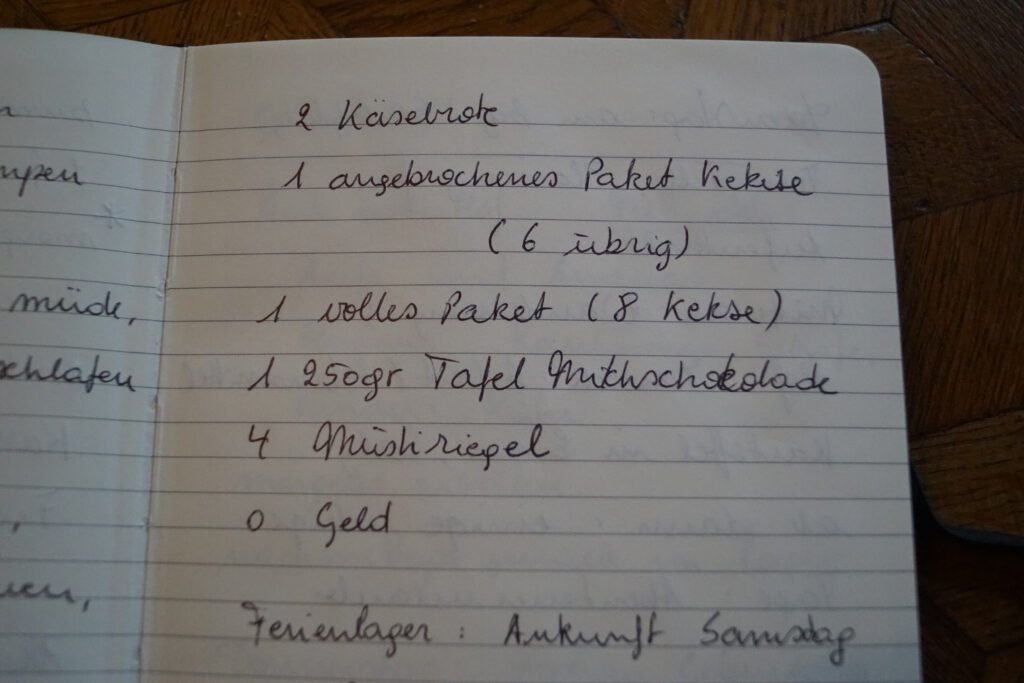 2 Käsebrote
1 angebrochenes Paket Kekse
(6 übrig)
müde,
1 volles Paket (8 Kekse)
schlafen
1 250gr Tafel Milchschokolade
4 Müsliriegel
0 Geld
Ferienlager: Ankunft Samstag